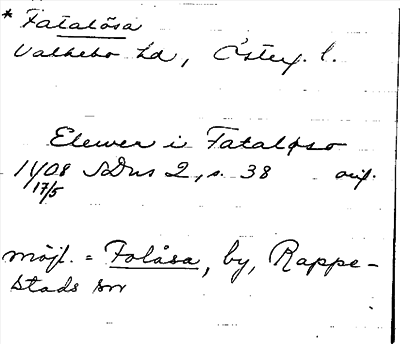 * Fatalåsa
Valkebo hd, Österg. l.
Elewer i Fataløso
1408 SDns 2, s. 38 orig.
17/5
möjl. = Folåsa, by, Rappe-
stads sn